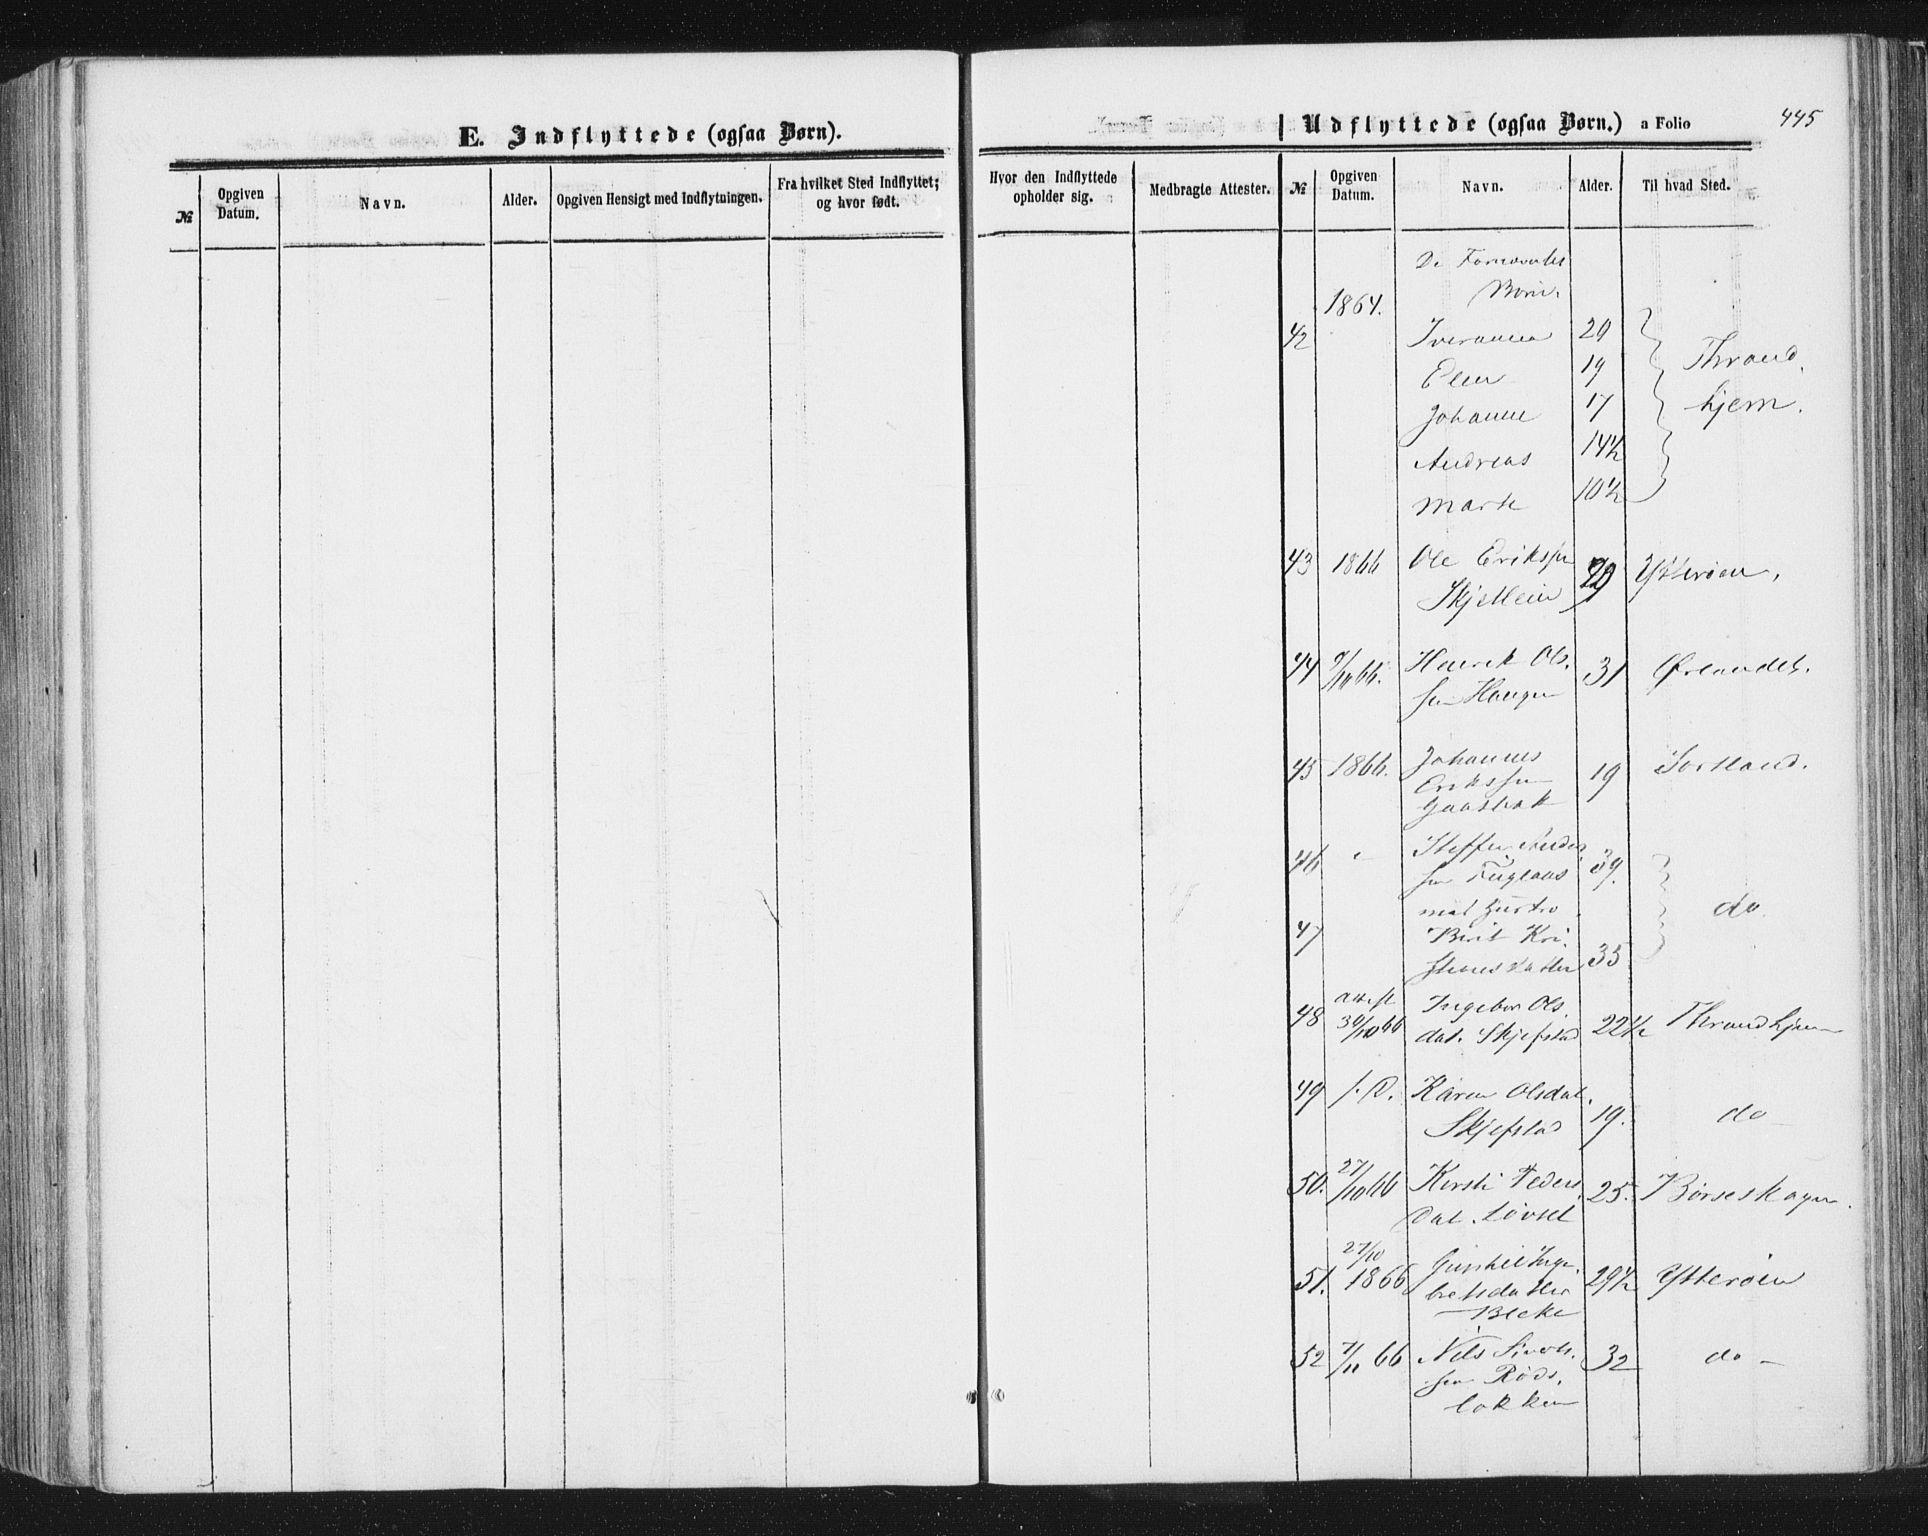 E. Indflyttede (ogsaa Børn).
Udflyttede (ogsaa Børn.) a Folio 445
№ Opgiven Datum. Navn. Alder. Opgiven Hensigt med Indflytningen. Fra hvilket Sted Indflyttet; og hvor født.
Hvor den Indflyttede opholder sig. Medbragte Attester. № Opgiven Datum. Navn. Alder. Til hvad Sted.
De Fornævntes
1864. Børn.
42 29
Elen 19 Thrond,
Johanne 17 hjem.
Andreas 14½
Marte 10½
43 1866 Ole Eriksen 29 Ytterøen.
Skjetlein
44 9/10 66. Henrik Ols. 31 Ørlandet.
sen Haugen
45 1866. Johannes 19 Sortland.
Erikssen
Gaasbak
46 Steffen Anders 39.
sen Fuglaas
med Hustro do
47 Birit Kri
stensdatter 35
Attest
48 30/10 66 Ingebor Ols. 22½ Throndhjem
dat. Skjefstad
49 Karen Olsdat. 19. do
Skjefstad
50. 27/10 66 Kirsti Peders 25. Børseskogn.
Dat. Løvset
27/10
51. 1866 Gunhil Inge. 29½ Ytterøen
bretsdatter
52 7/11 66 Nils Siverts. 32 do
sen Røds,
løkken